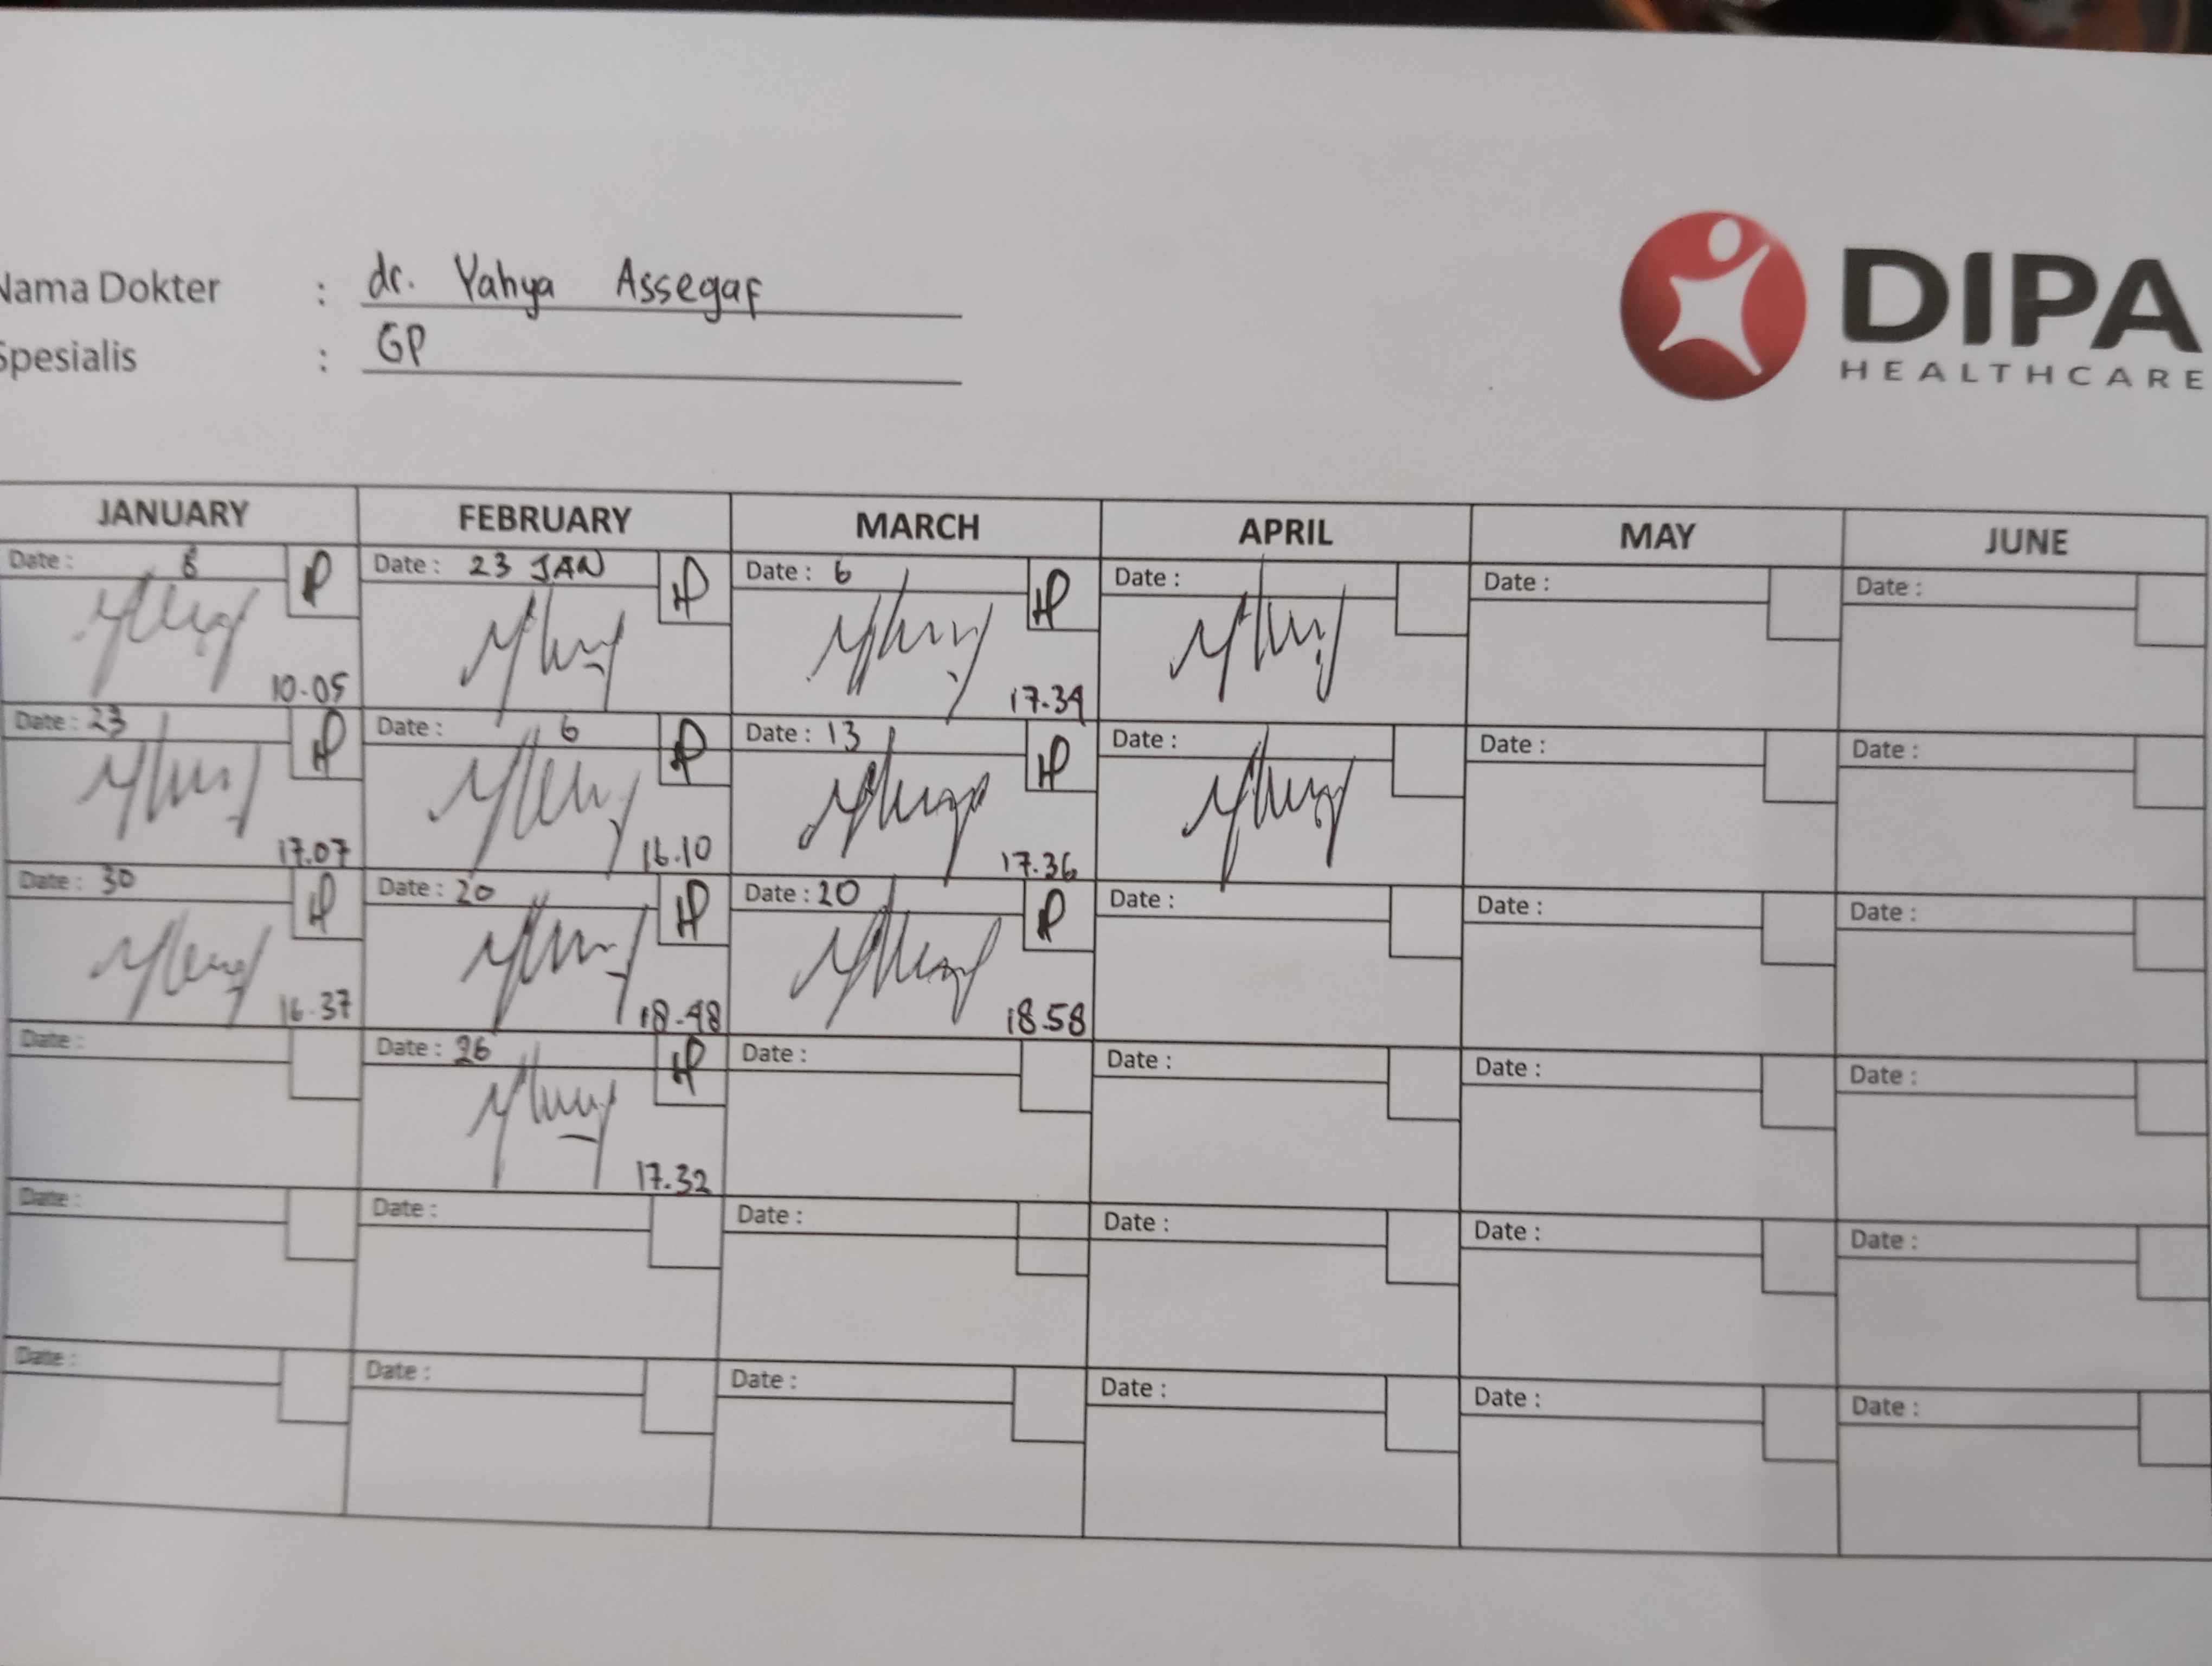 Nama Dokter : dr. Yahya Assegaf
Spesialis : GP
DIPA
HEALTHCARE
JANUARY FEBRUARY MARCH APRIL MAY JUNE
Date : 8 Date : 23 JAN Date : 6 Date : Date : Date :
10.05 17.34
Date : 23 Date : 6 Date : 13 Date : Date : Date :
17.07 16.10 17.36
Date : 30 Date : 20 Date : 20 Date : Date : Date :
16.37 18.48 18.58
Date : Date : 26 Date : Date : Date : Date :
17.32
Date : Date : Date : Date : Date : Date :
Date : Date : Date : Date : Date : Date :